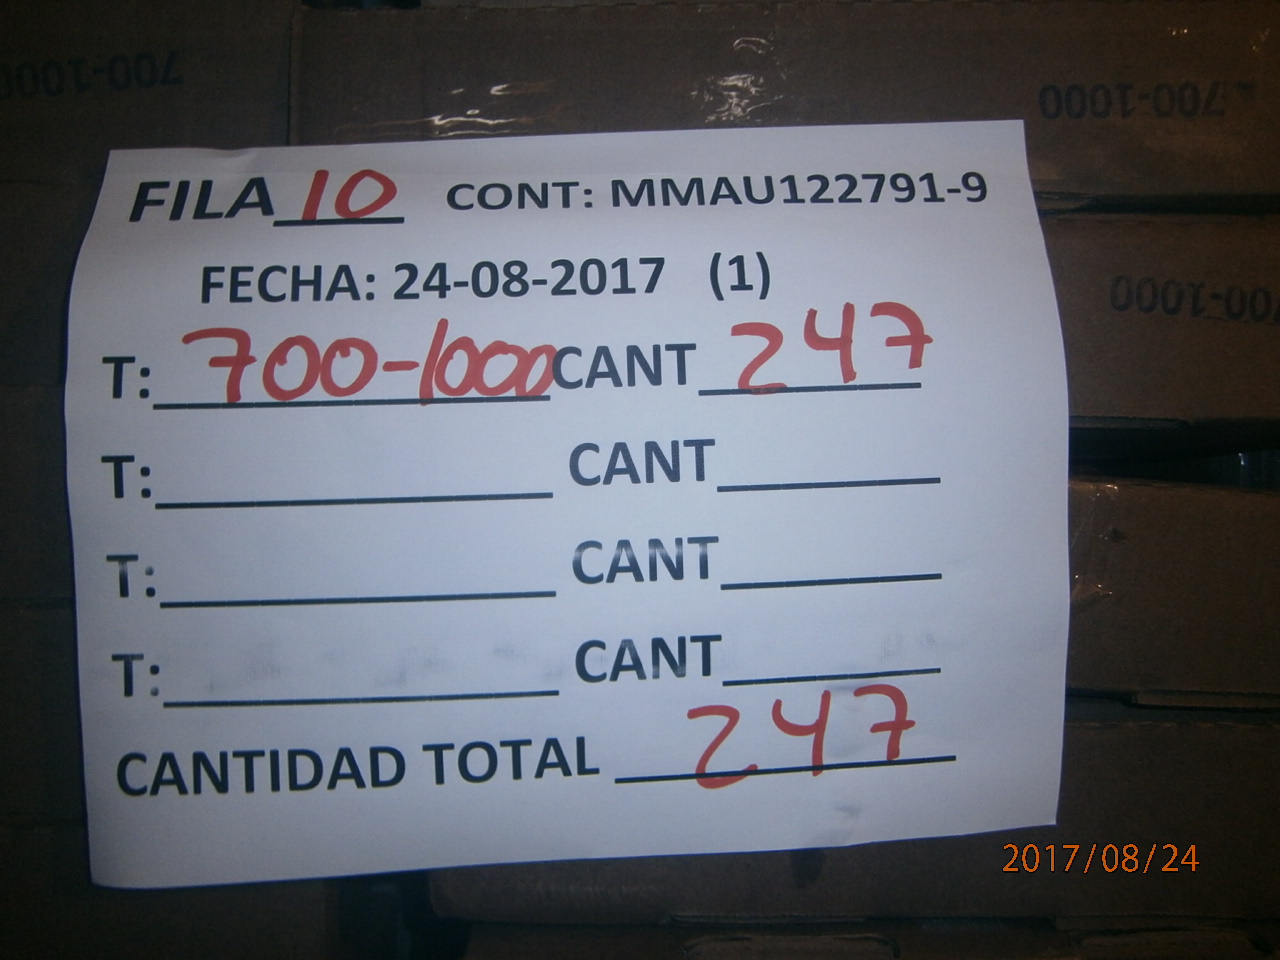 700-1000
700-1000
FILA 10 CONT: MMAU122791-9
FECHA: 24-08-2017 (1)
700-1000
T: 700-1000 CANT 247
T: CANT
T: CANT
T: CANT
CANTIDAD TOTAL 247
2017/08/24